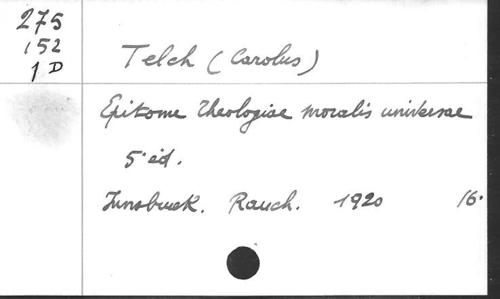 275
152
1 D
Telch (Carolus)
Epitome Theologiae moralis universae
5e éd.
Innsbruck. Rauch. 1920 16.